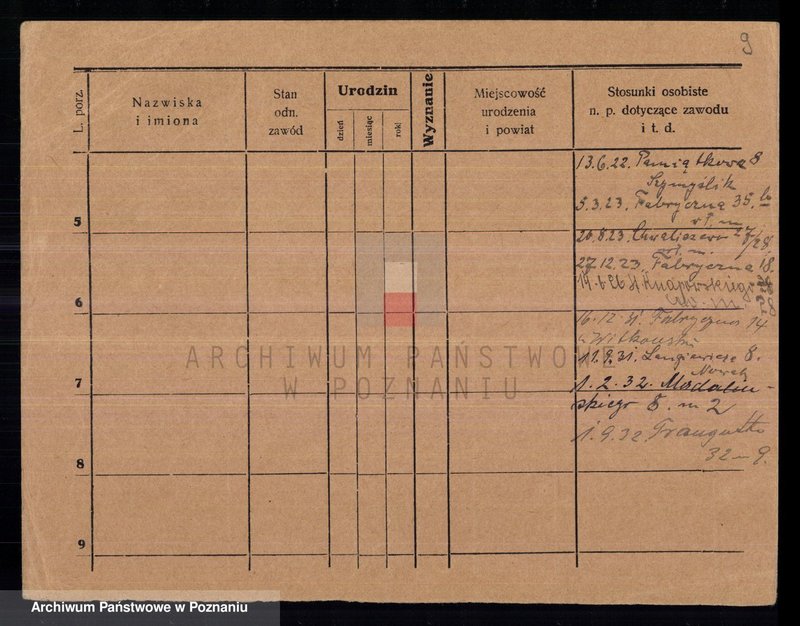 9
L. porz.
Nazwiska
i imiona
Stan
odn.
zawód
Urodzin
dzień
miesiąc
rok
Wyznanie
Miejscowość
urodzenia
i powiat
Stosunki osobiste
n. p. dotyczące zawodu
i t. d.
13.6.22. Pamiątkowa 8
Szymyślik
5.3.23. Fabryczna 35.
5
26.8.23. Chwaliszewo 27/28
27.12.23. Fabryczna 18.
19.6.26 H Knapowskiego
6
16.12. Fabryczna 14
Witkowski
ARCHIWUM PAŃSTWOWE
W POZNANIU
11.9.31. Langiewicza 8.
Nowak
7
1.2.32. Madaliń-
skiego 8. m 2
1.9.32. Traugutta
32 m 9.
8
9
Archiwum Państwowe w Poznaniu